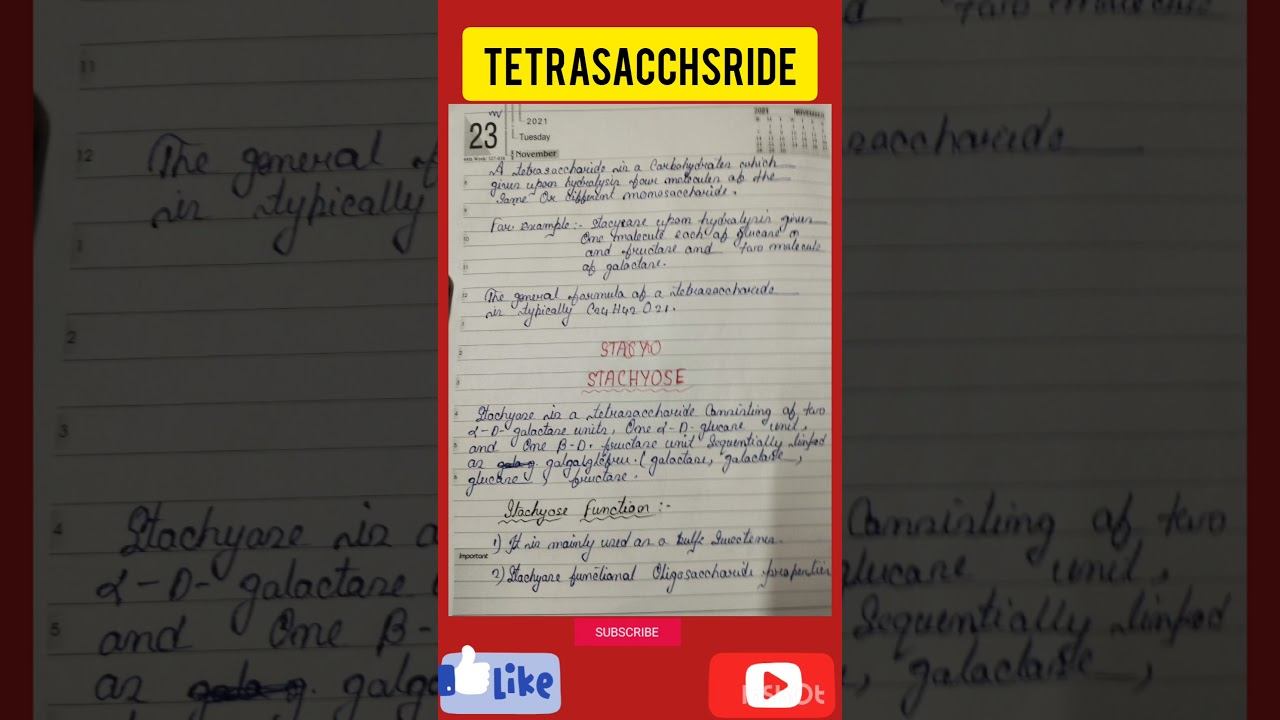 TETRASACCHSRIDE
23
2021
Tuesday
November
2021 NOVEMBER
A tetrasaccharide is a Carbohydrates which
gives upon hydrolysis four molecules of the
Same Or different monosaccharide.
For Example:- Stacyease upon hydrolysis gives
One molecule each of glucose
and fructose and two molecule
of galactose.
The general formula of a tetrasaccharide
is typically C24 H42 O21.
STACYO
STACHYOSE
Stachyose is a tetrasaccharide Consisting of two
α-D-galactose units, One α-D-glucose unit,
and One B-D-fructose unit Sequentially linked
as galgalglcfru. (galactose, galactose,
glucose, fructose.
Stachyose Function:-
1) It is mainly used as a bulk Sweetener.
Important
2) Stachyose functional Oligosaccharide properties
SUBSCRIBE
Like
11
12 The general
is typically
1
2
3
4 Stachyose is a
α-D-galactose
5 and One B-
as
two molecule
saccharide
Consisting of two
glucose unit,
Sequentially linked
, galactose,